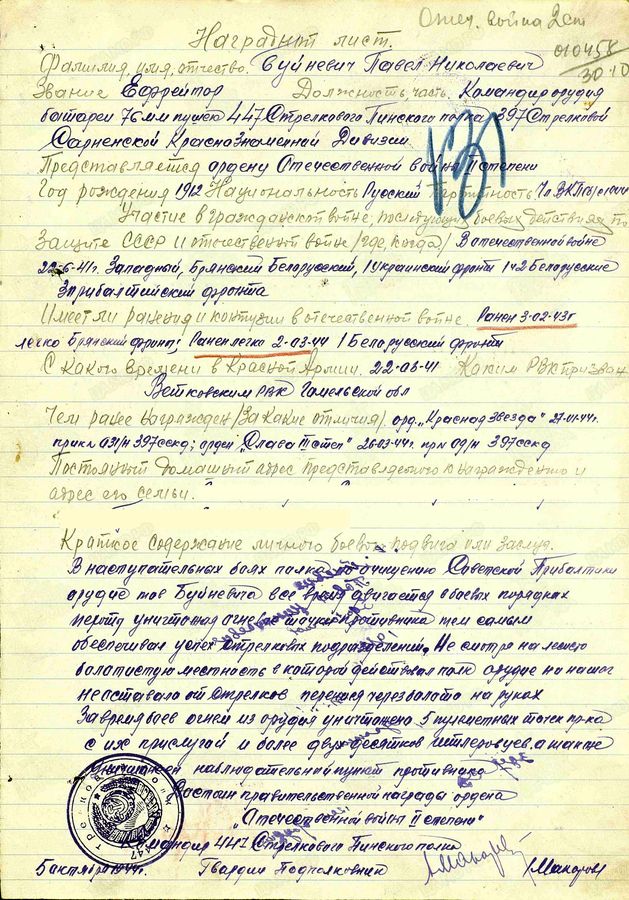 Отеч. война 2 ст
Наградной лист.
010458
30.10
Фамилия, имя, отчество. Буйневич Павел Николаевич
Звание Ефрейтор Должность, часть. Командир орудия
батареи 76 мм пушек 447 Стрелкового Пинского полка 397 Стрелковой
Сарненской Краснознаменной Дивизии
Представляется ордену Отечественной войны II степени
Год рождения 1912 Национальность Русский Партийность Чл. ВКП(б)
Участие в гражданской войне, последующих боевых действиях по
защите СССР и отечественной войне /где, когда/ В отечественной войне
22-6-41г. Западный, Брянский, Белорусский, 1 Украинский фронт 1 и 2 Белорусские
3 прибалтийский фронта
Имеет ли ранения и контузии в отечественной войне. Ранен 3-02-43г
легко Брянский фронт; Ранен легко 2-03-44 1 Белорусский фронт
С какого времени в Красной Армии. 22-06-41 Каким РВК призван
Ветковским РВК Гомельской обл
Чем ранее награжден /за какие отличия/. орд. "Красная Звезда" 27-01-44г.
прик 031/н 397 сскд; орден "Слава III степ" 26-03-44г. пр 09/н 397 сскд
Постоянный домашний адрес представляемого к награждению и
адрес его семьи.
Краткое содержание личного боевого подвига или заслуг.
В наступательных боях полка по очищению Советской Прибалтики
орудие тов Буйневича все время двигается в боевых порядках
пехоты уничтожая огневые точки противника тем самым
обеспечивая успех стрелковых подразделений. Не смотря на лесную
болотистую местность в которой действовал полк орудие ни на шаг
не оставало от стрелков перенося через болота на руках
За время боев огнем из орудия уничтожено 5 пулеметных точек пр-ка
с их прислугой и более двух десятков гитлеровцев, а также
уничтожен наблюдательный пункт противника
Достоин правительственной награды ордена
"Отечественной войны II степени"
Командир 447 Стрелкового Пинского полка
5 октября 1944г. Гвардии Подполковник /Макаров/